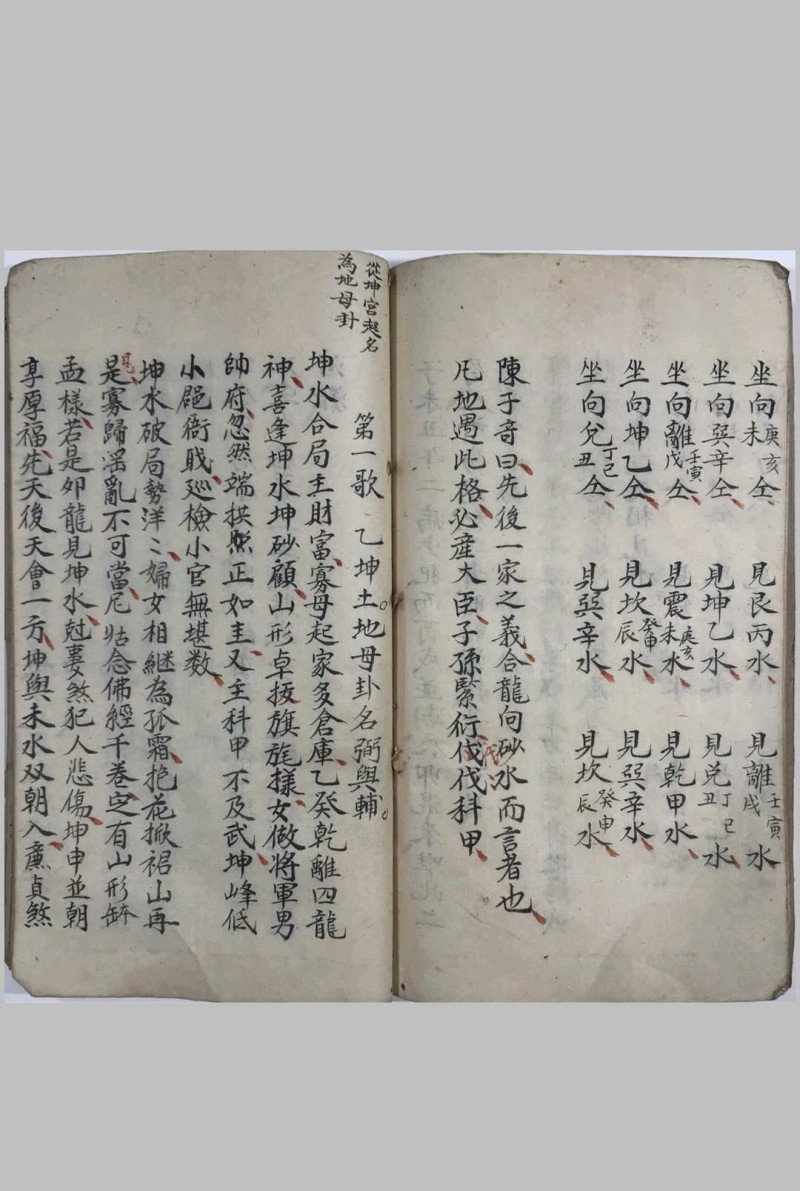 坐向未庚亥仝、見艮丙水、見離壬寅戌水
坐向巽辛仝、見坤乙水、見兌丁巳丑水、
坐向離壬寅戌仝、見震庚亥未水、見乾甲水、
坐向坤乙仝、見坎癸申辰水、見巽辛水、
坐向兌丁巳丑仝、見巽辛水、見坎癸申辰水、
陳子奇曰、先後一家之義、合龍向砂水而言者也、
凡地遇此格、必産大臣、子孫繁衍、伐伐科甲、
從坤宮起名
為地母卦
第一歌 乙坤土。地母卦名弼與輔。
坤水合局主財富、寡母起家多倉庫、乙癸乾離四龍
神、喜逢坤水坤砂顧、山形卓拔旗旄樣、女做將軍男
帥府、忽然端拱照正如主、又主科甲不及武、坤峰低
小㔽衙戝、廵檢小官無堪数、
坤水破局勢洋〻、婦女相継為孤霜、抱花掀裙山再
見、是寡歸滛亂不可當、尼姑念佛經千巻、㝎有山形缽
盂樣、若是卯龍見坤水、尅妻煞犯人悲傷、坤申並朝
享厚福、先天後天會一方、坤與未水双朝入、亷貞煞